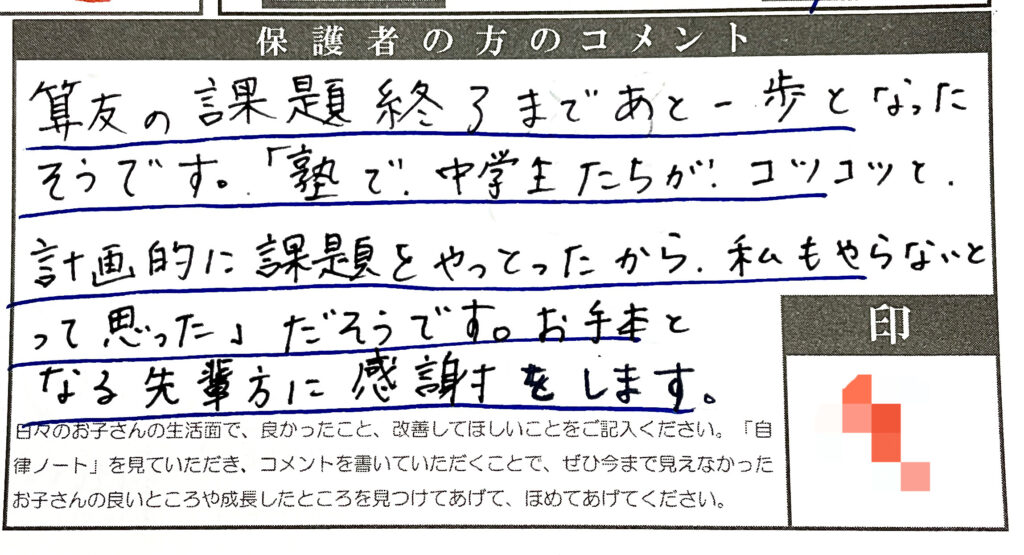 保護者の方のコメント
算友の課題終了まであと一歩となった
そうです。「塾で、中学生たちが、コツコツと、
計画的に課題をやっとったから、私もやらないと
って思った」だそうです。お手本と
なる先輩方に感謝をします。
印
日々のお子さんの生活面で、良かったこと、改善してほしいことをご記入ください。「自
律ノート」を見ていただき、コメントを書いていただくことで、ぜひ今まで見えなかった
お子さんの良いところや成長したところを見つけてあげて、ほめてあげてください。